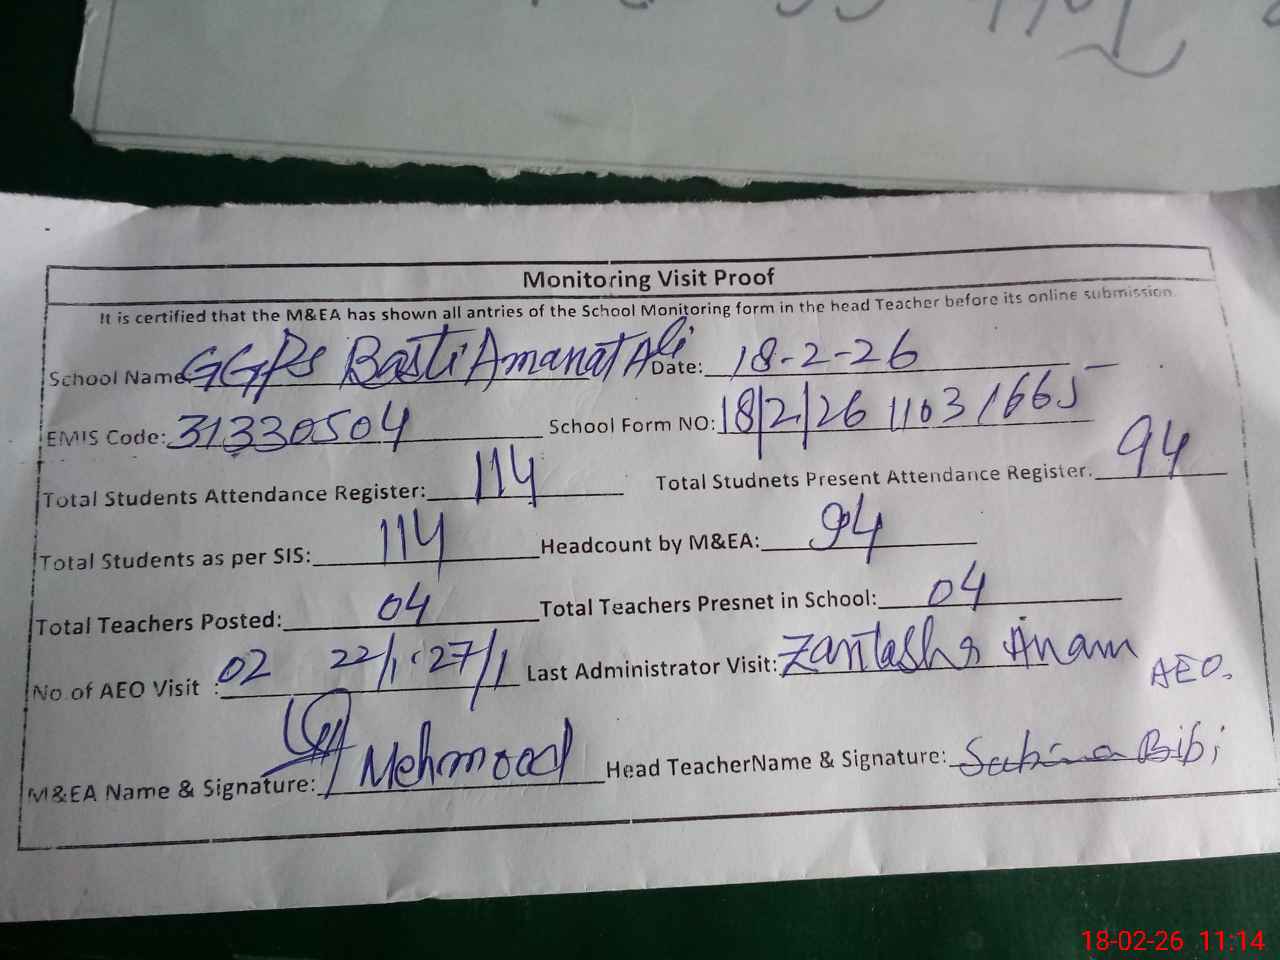 Monitoring Visit Proof
It is certified that the M&EA has shown all antries of the School Monitoring form in the head Teacher before its online submission.
School Name GGPS Basti Amanat Ali Date: 18-2-26
EMIS Code: 31330504 School Form NO: 18/2/26 11031665
Total Students Attendance Register: 114 Total Studnets Present Attendance Register. 94
Total Students as per SIS: 114 Headcount by M&EA: 94
Total Teachers Posted: 04 Total Teachers Presnet in School: 04
No.of AEO Visit : 02 22/1 27/1 Last Administrator Visit: Anam AEO.
M&EA Name & Signature: Mehmood Head TeacherName & Signature: Sabina Bibi
18-02-26 11:14